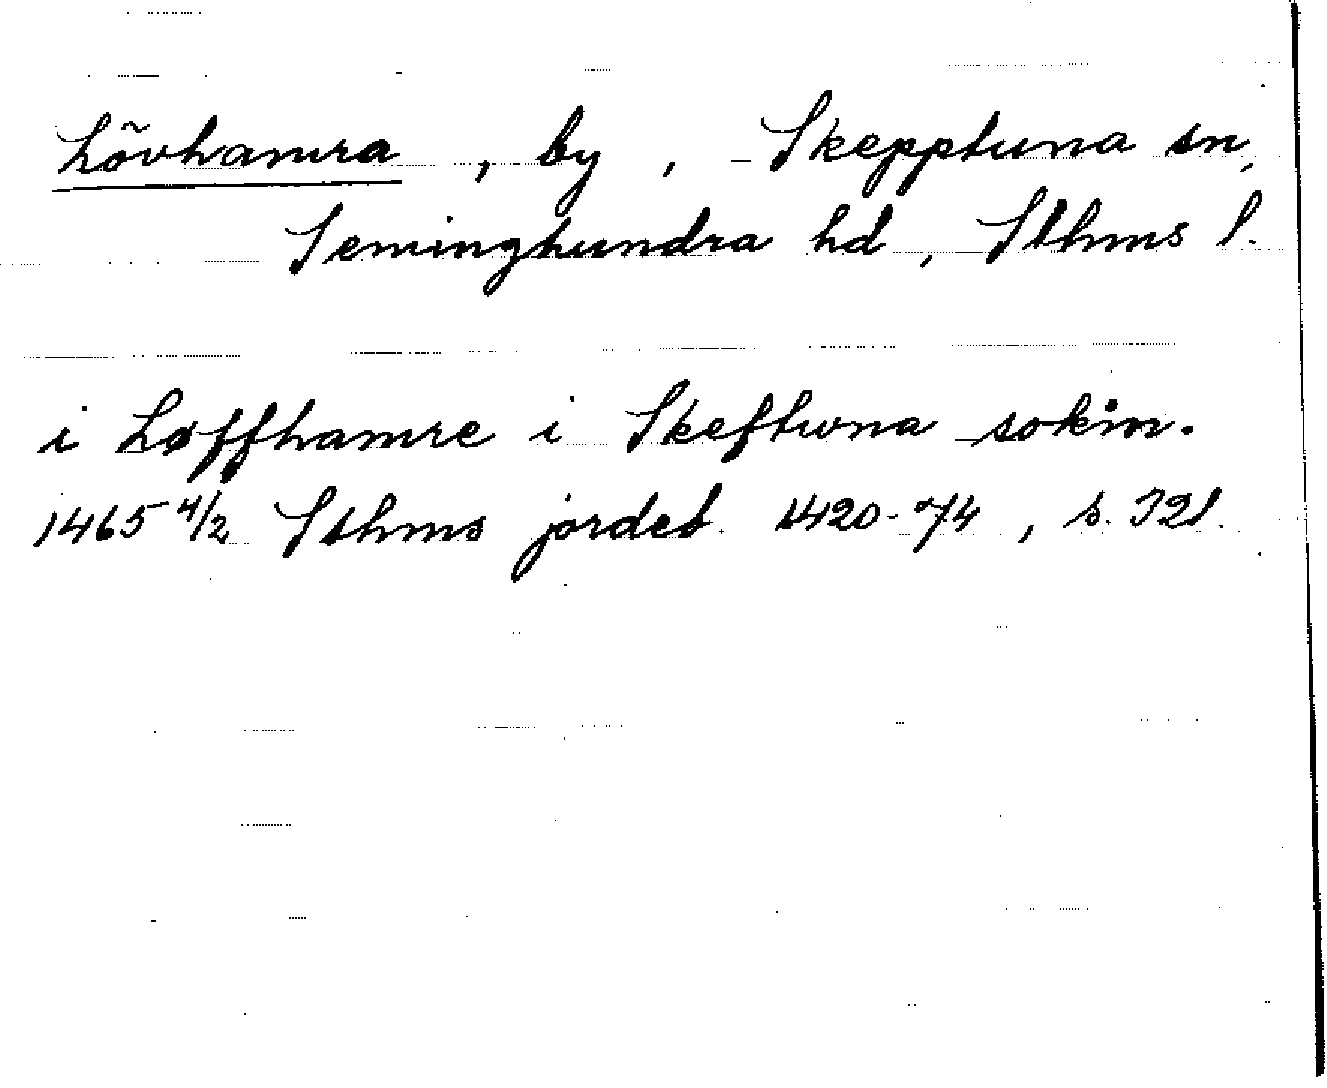 Lövhamra, by, Skepptuna sn,
Seminghundra hd, Sthms l.
i Løffhamre i Skeftwna sokin.
1465 4/2 Sthms jordeb 1420-74, s. 321.